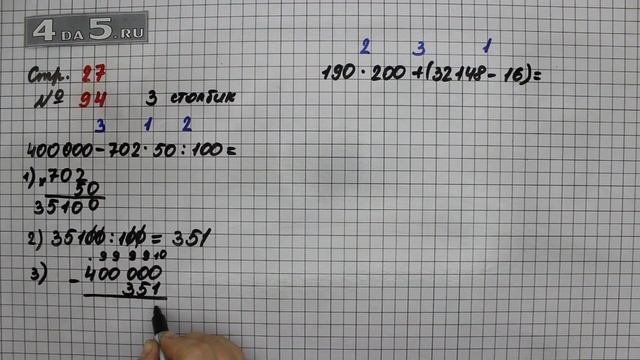 4 да 5.RU
Стр. 27
№ 94 3 столбик
3 1 2
400 000 - 702 · 50 : 100 =
1) × 702
50
35100
2) 35100 : 100 = 351
. 9 9 9 9 10
3) - 400 000
351
2 3 1
190 · 200 + (32148 - 16) =